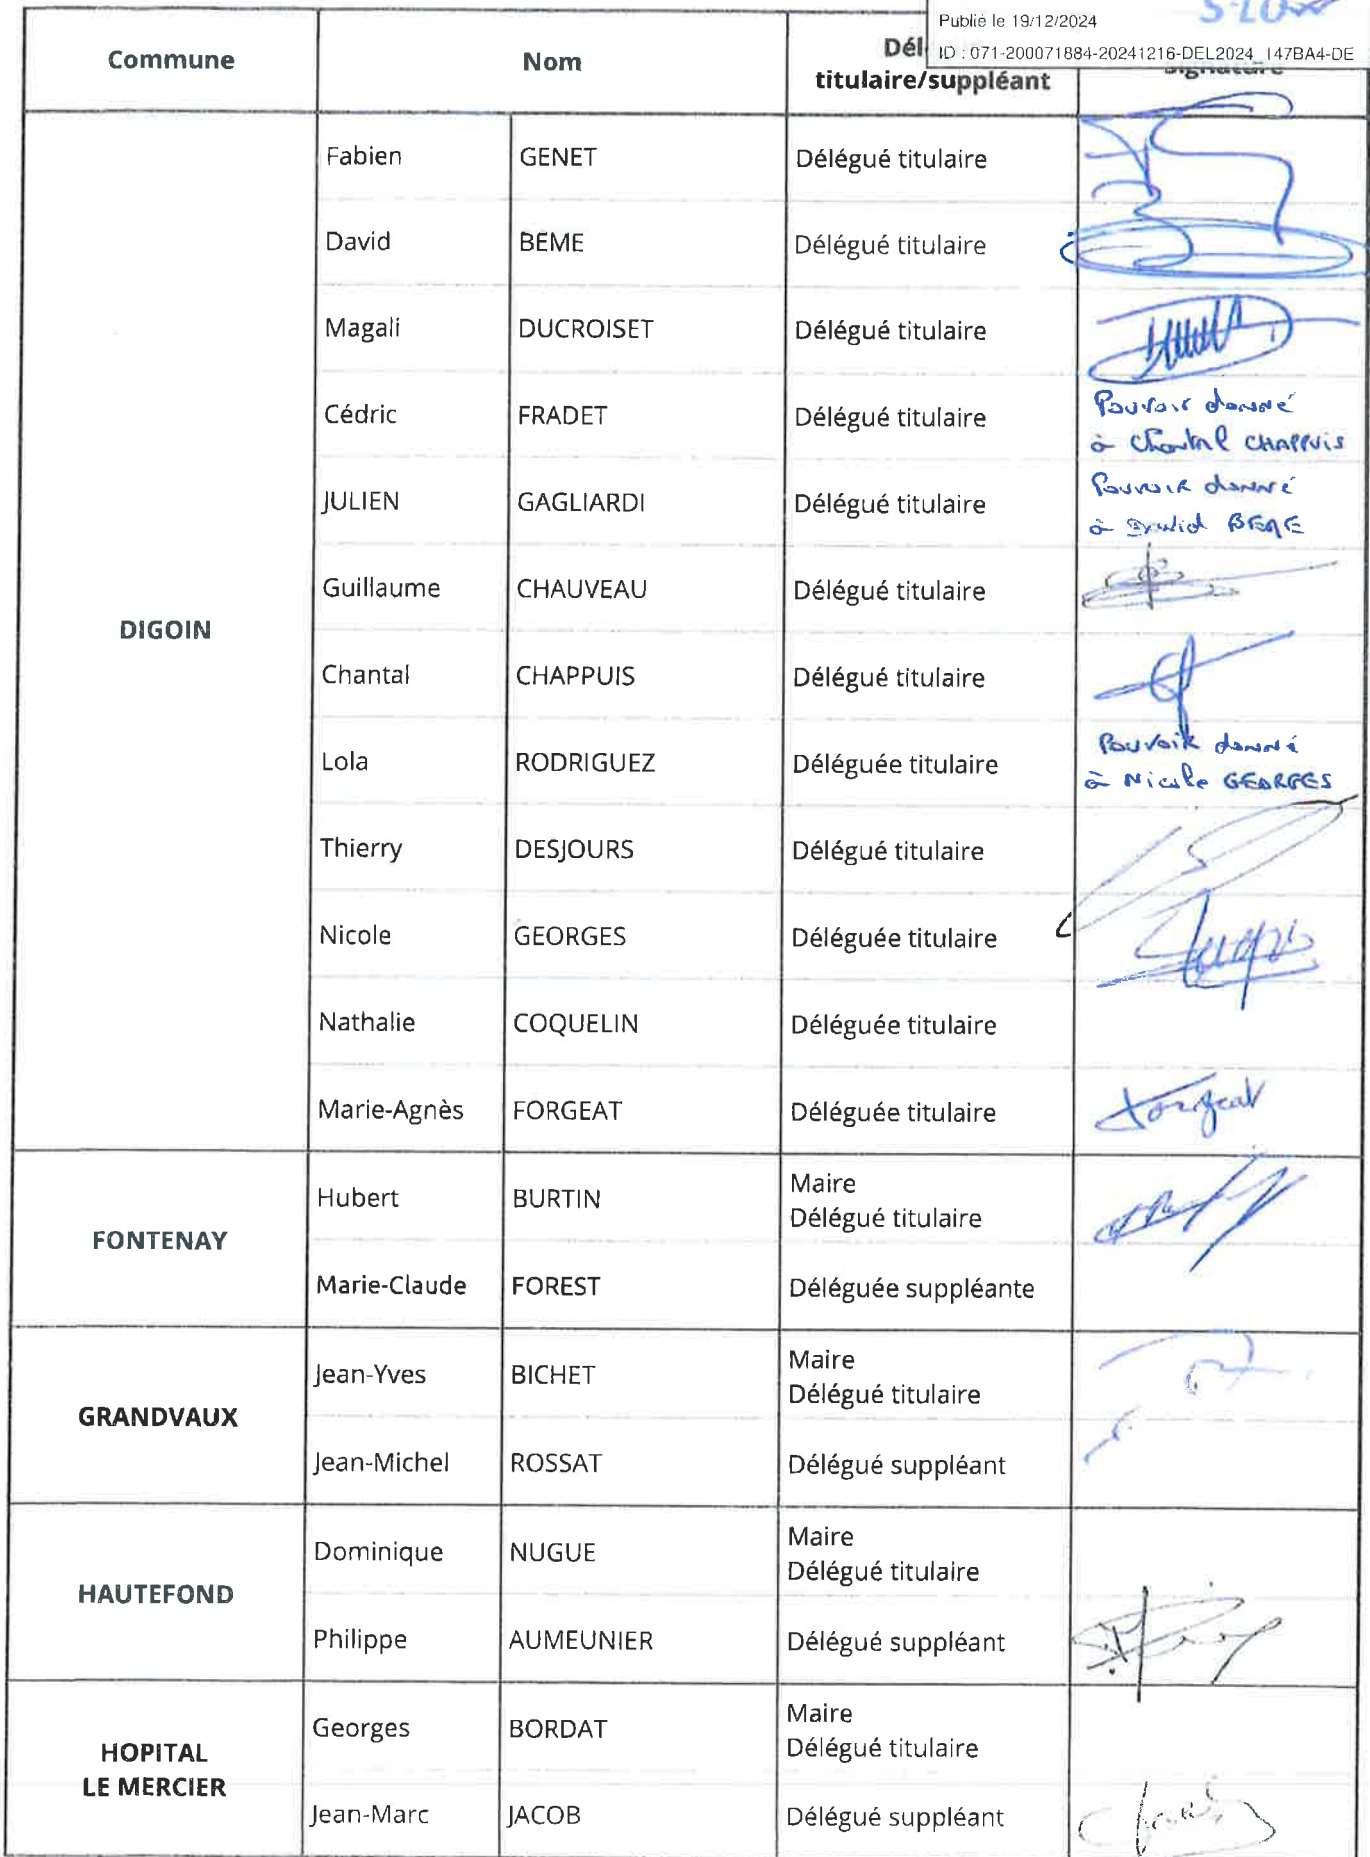 Publié le 19/12/2024
ID : 071-200071884-20241216-DEL2024_147BA4-DE
Commune Nom Dél
titulaire/suppléant Signature
DIGOIN
Fabien GENET Délégué titulaire
David BEME Délégué titulaire
Magali DUCROISET Délégué titulaire
Cédric FRADET Délégué titulaire Pouvoir donné
à Chantal CHAPPUIS
JULIEN GAGLIARDI Délégué titulaire Pouvoir donné
à David BEME
Guillaume CHAUVEAU Délégué titulaire
Chantal CHAPPUIS Délégué titulaire
Lola RODRIGUEZ Déléguée titulaire Pouvoir donné
à Nicole GEORGES
Thierry DESJOURS Délégué titulaire
Nicole GEORGES Déléguée titulaire
Nathalie COQUELIN Déléguée titulaire
Marie-Agnès FORGEAT Déléguée titulaire Forgeat
FONTENAY
Hubert BURTIN Maire
Délégué titulaire
Marie-Claude FOREST Déléguée suppléante
GRANDVAUX
Jean-Yves BICHET Maire
Délégué titulaire
Jean-Michel ROSSAT Délégué suppléant
HAUTEFOND
Dominique NUGUE Maire
Délégué titulaire
Philippe AUMEUNIER Délégué suppléant
HOPITAL
LE MERCIER
Georges BORDAT Maire
Délégué titulaire
Jean-Marc JACOB Délégué suppléant